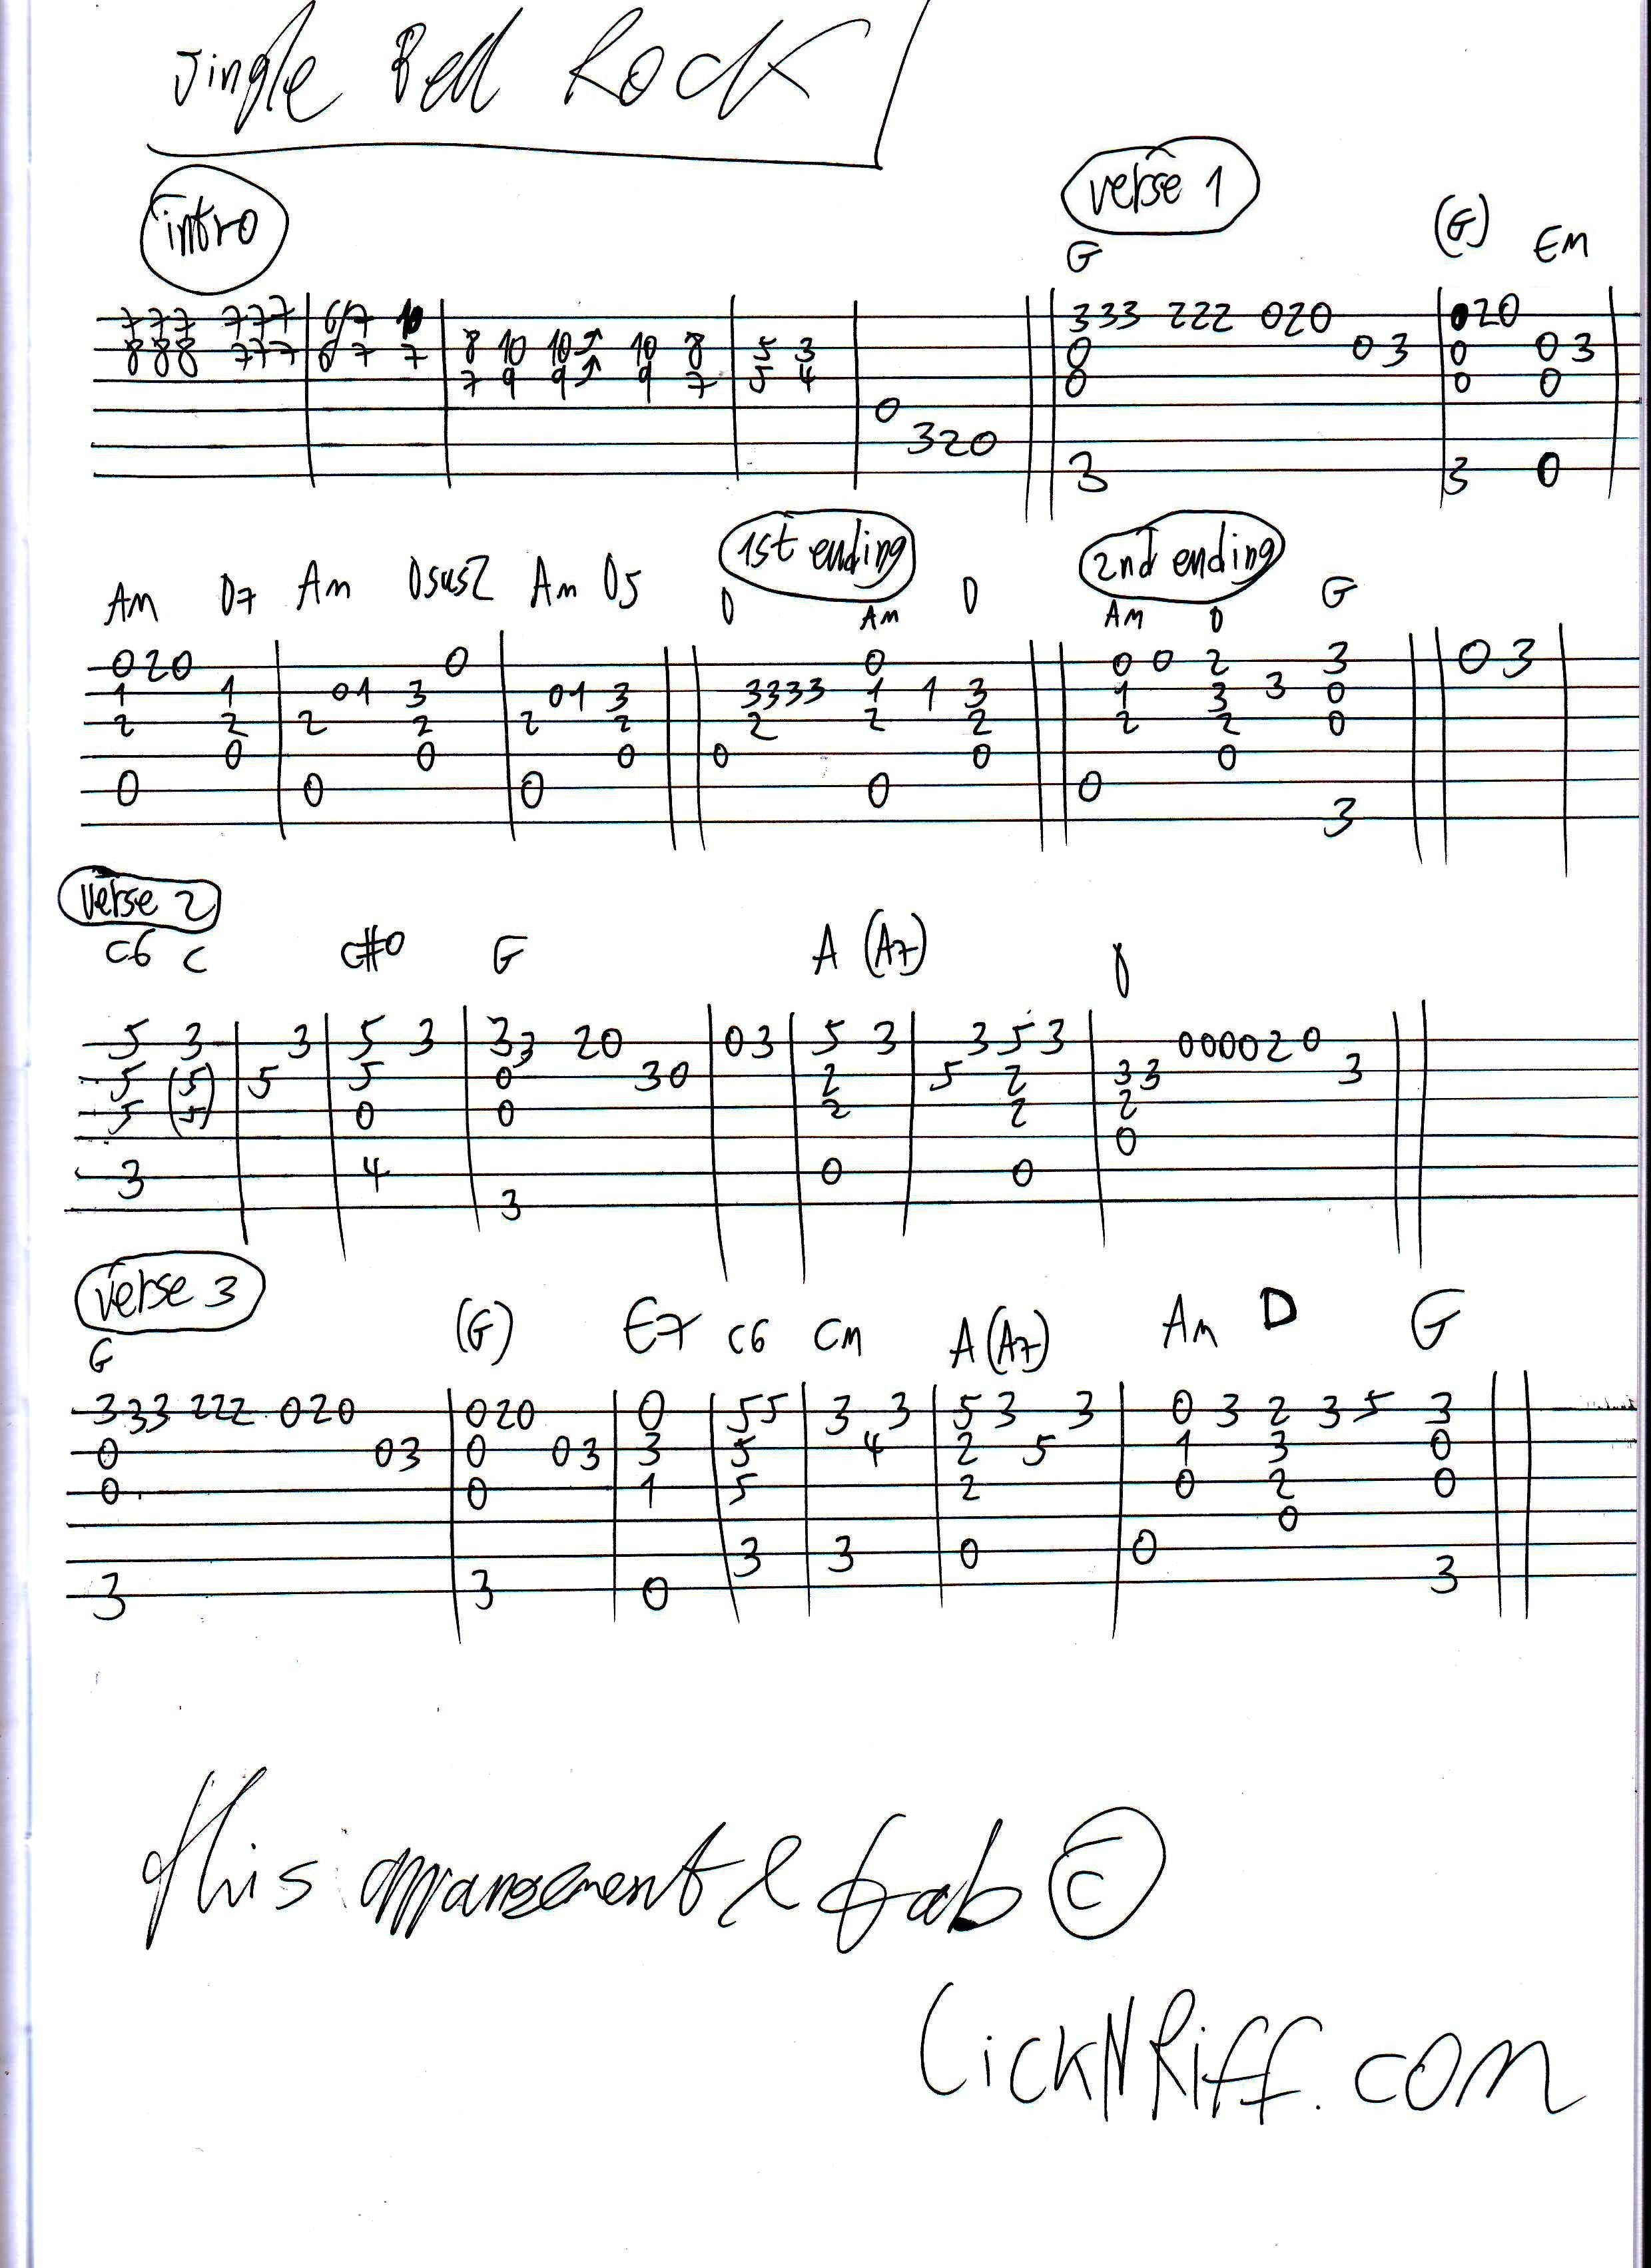 Jingle Bell Rock
intro
verse 1
G (G) Em
777 777 6/7 10 333 222 020 020
888 777 6 7 7 8 10 10 10 8 5 3 0 03 0 03
7 9 9 9 7 5 4 0 0 0
0
320
3 3 0
1st ending 2nd ending
Am D7 Am Dsus2 Am D5 D Am D Am D G
020 0 0 0 0 2 3 03
1 1 01 3 01 3 3333 1 1 3 1 3 3 0
2 2 2 2 2 2 2 2 2 2 2 0
0 0 0 0 0 0
0 0 0 0 0
3
verse 2
C6 C C#0 G A (A7) D
5 3 3 5 3 33 20 03 5 3 353 000020
5 (5) 5 5 0 30 2 5 2 33 3
5 (5) 0 0 2 2 2
0
3 4 0 0
3
verse 3
G (G) E7 C6 Cm A (A7) Am D G
333 222 020 020 0 55 3 3 53 3 0 3 2 3 5 3
0 03 0 03 3 5 4 2 5 1 3 0
0 0 1 5 2 0 2 0
0
3 3 0 0
3 3 0 3
This arrangement & tab ©
LickNRiff.com